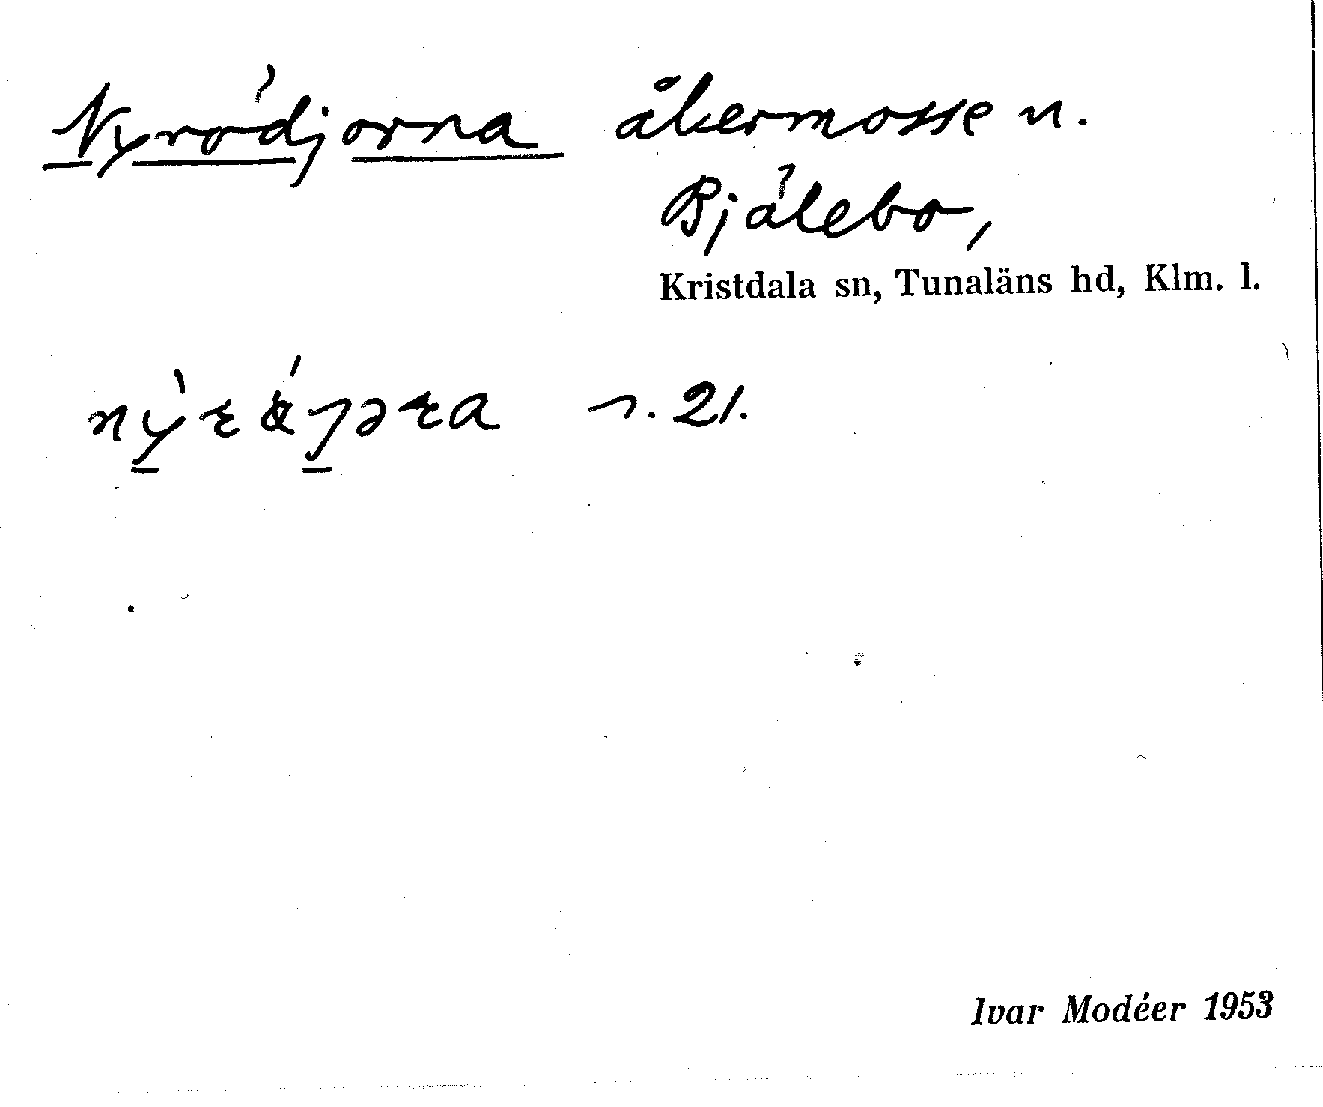 Nyrödjorna åkermosse n.
Bjälebo,
Kristdala sn, Tunaläns hd, Klm. l.
n. 21.
Ivar Modéer 1953